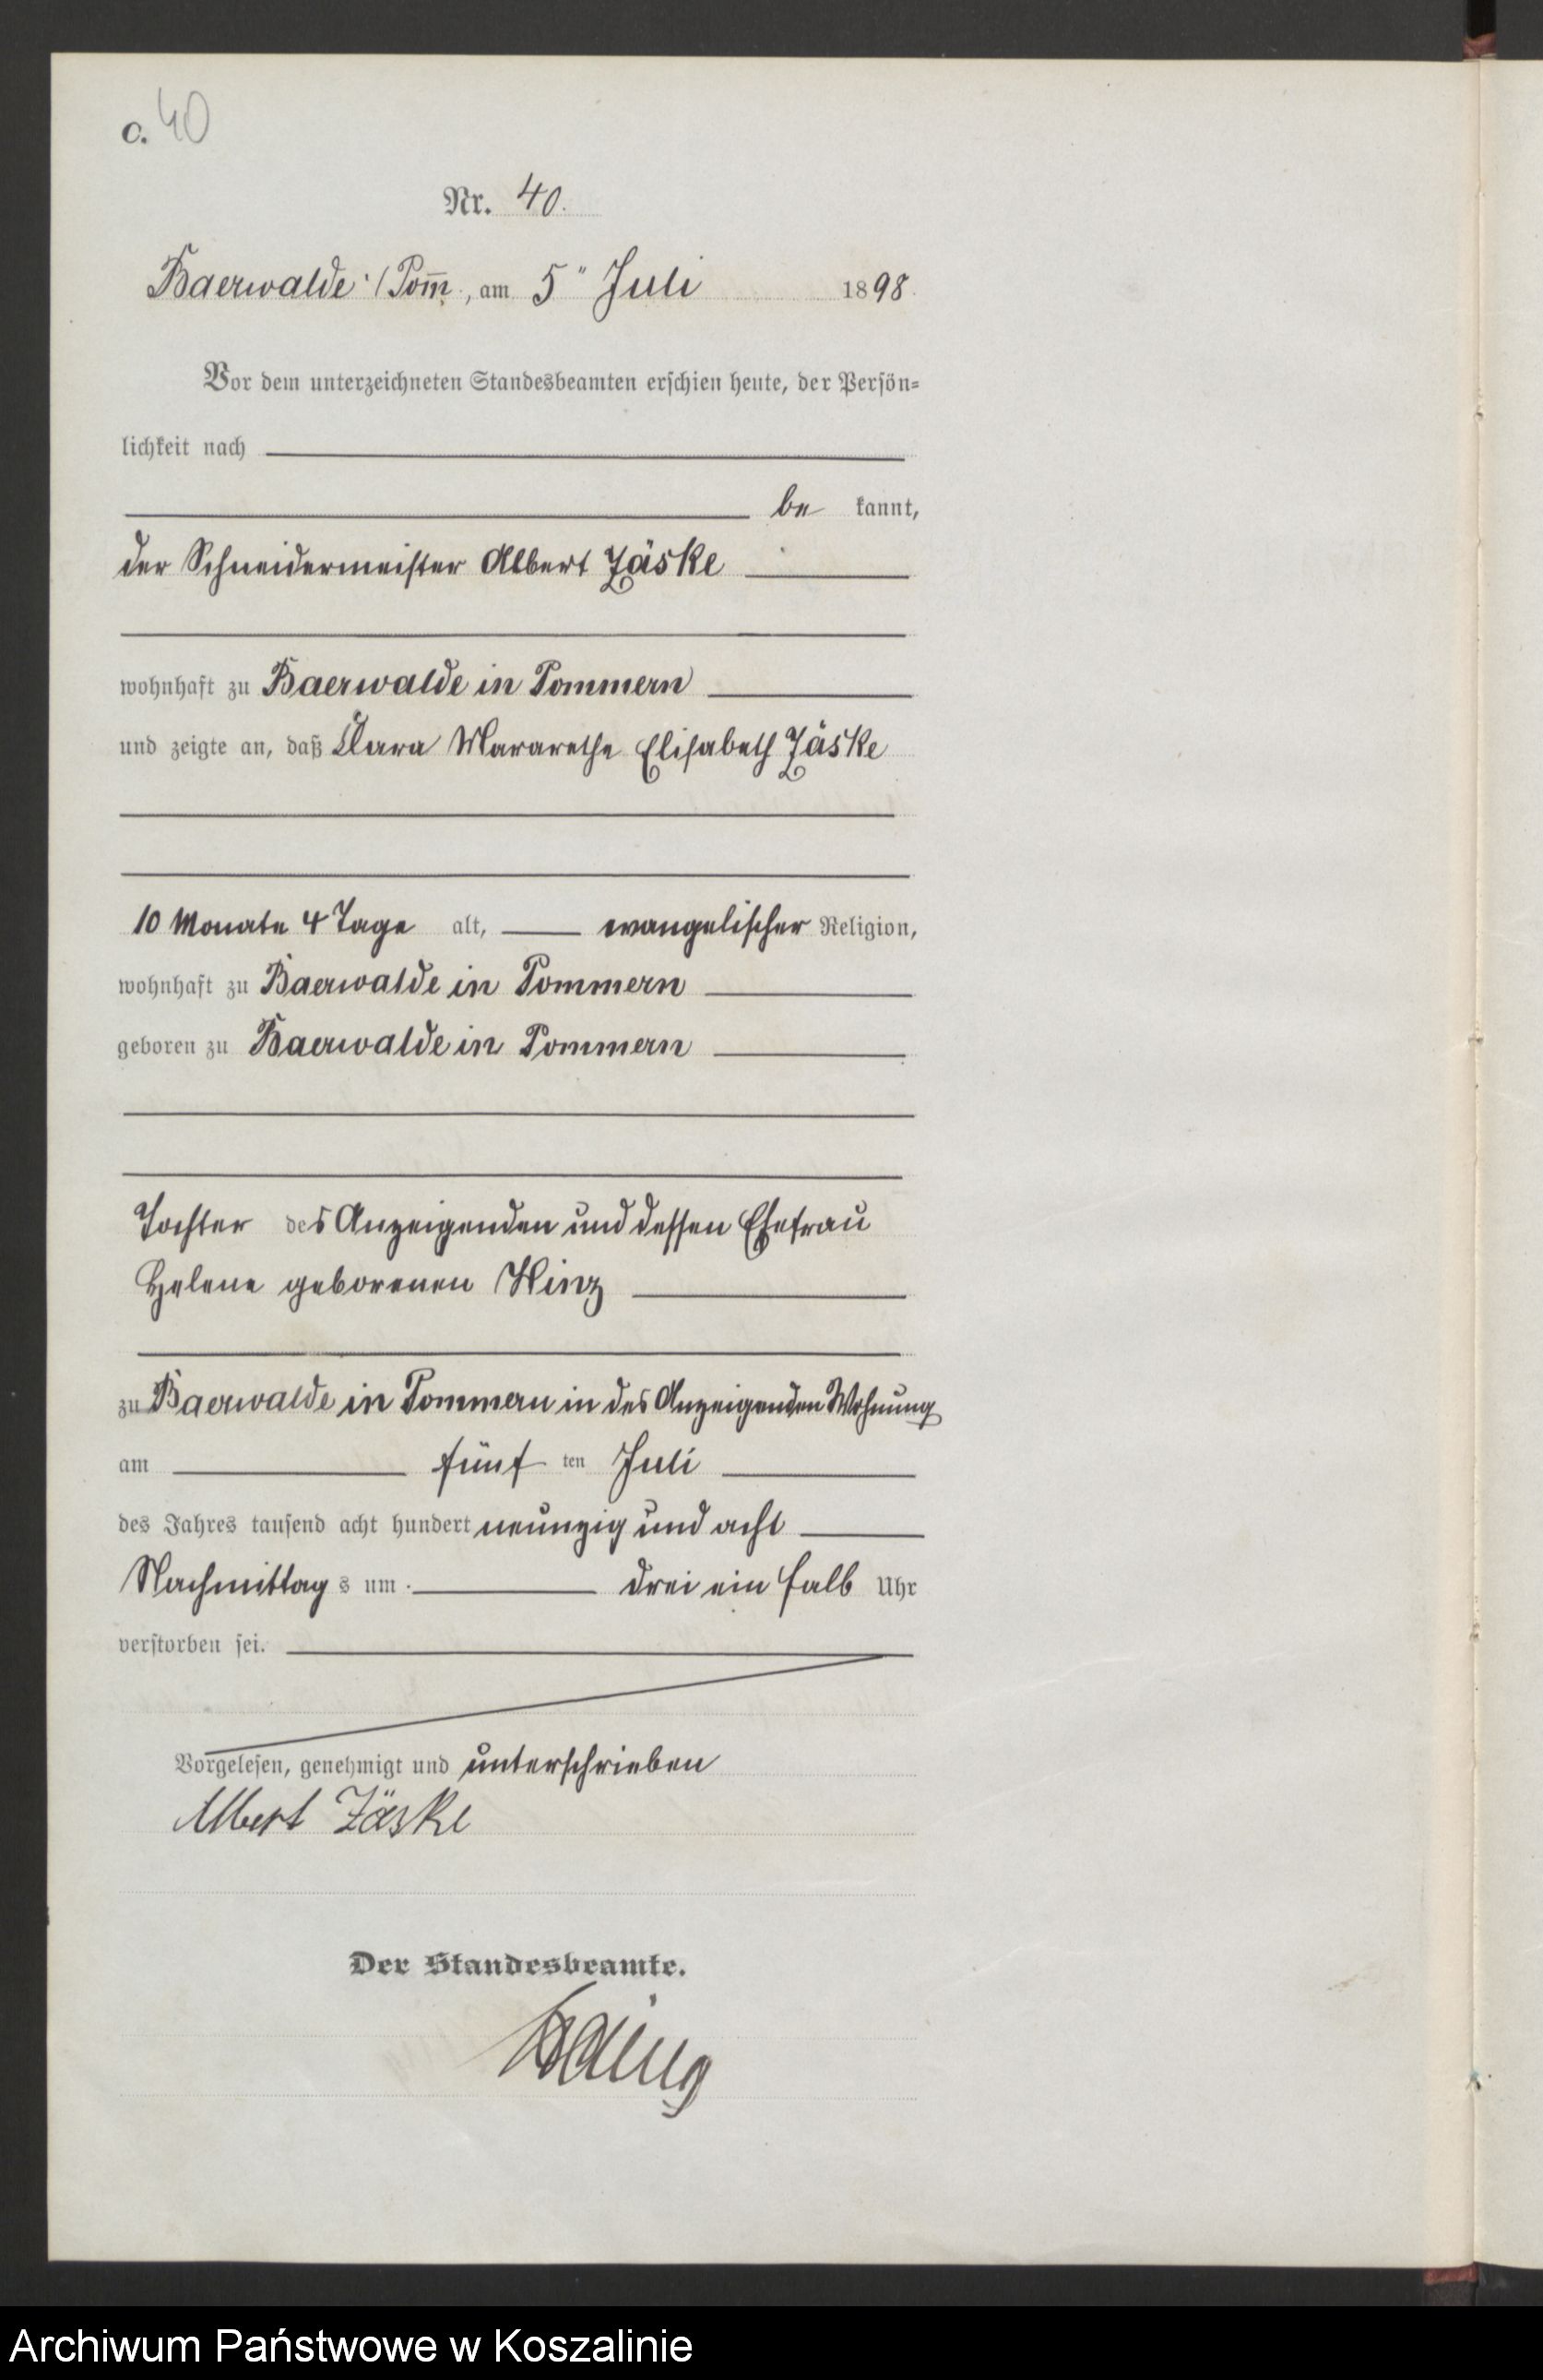 C. 40
Nr. 40.
Baerwalde i/Pom̄., am 5" Juli 1898.
Vor dem unterzeichneten Standesbeamten erschien heute, der Persön=
lichkeit nach
be kannt,
der Schneidermeister Albert Jäske
wohnhaft zu Baerwalde in Pommern
und zeigte an, daß Clara Mararethe Elisabeth Jäske
10 Monate 4 Tage alt, evangelischer Religion,
wohnhaft zu Baerwalde in Pommern
geboren zu Baerwalde in Pommern
Tochter des Anzeigenden und dessen Ehefrau
Helene geborenen Hinz
zu Baerwalde in Pommern in des Anzeigenden Wohnung
am fünf ten Juli
des Jahres tausend acht hundert neunzig und acht
Nachmittag s um drei ein halb Uhr
verstorben sei.
Vorgelesen, genehmigt und unterschrieben
Albert Jäske
Der Standesbeamte.
Archiwum Państwowe w Koszalinie